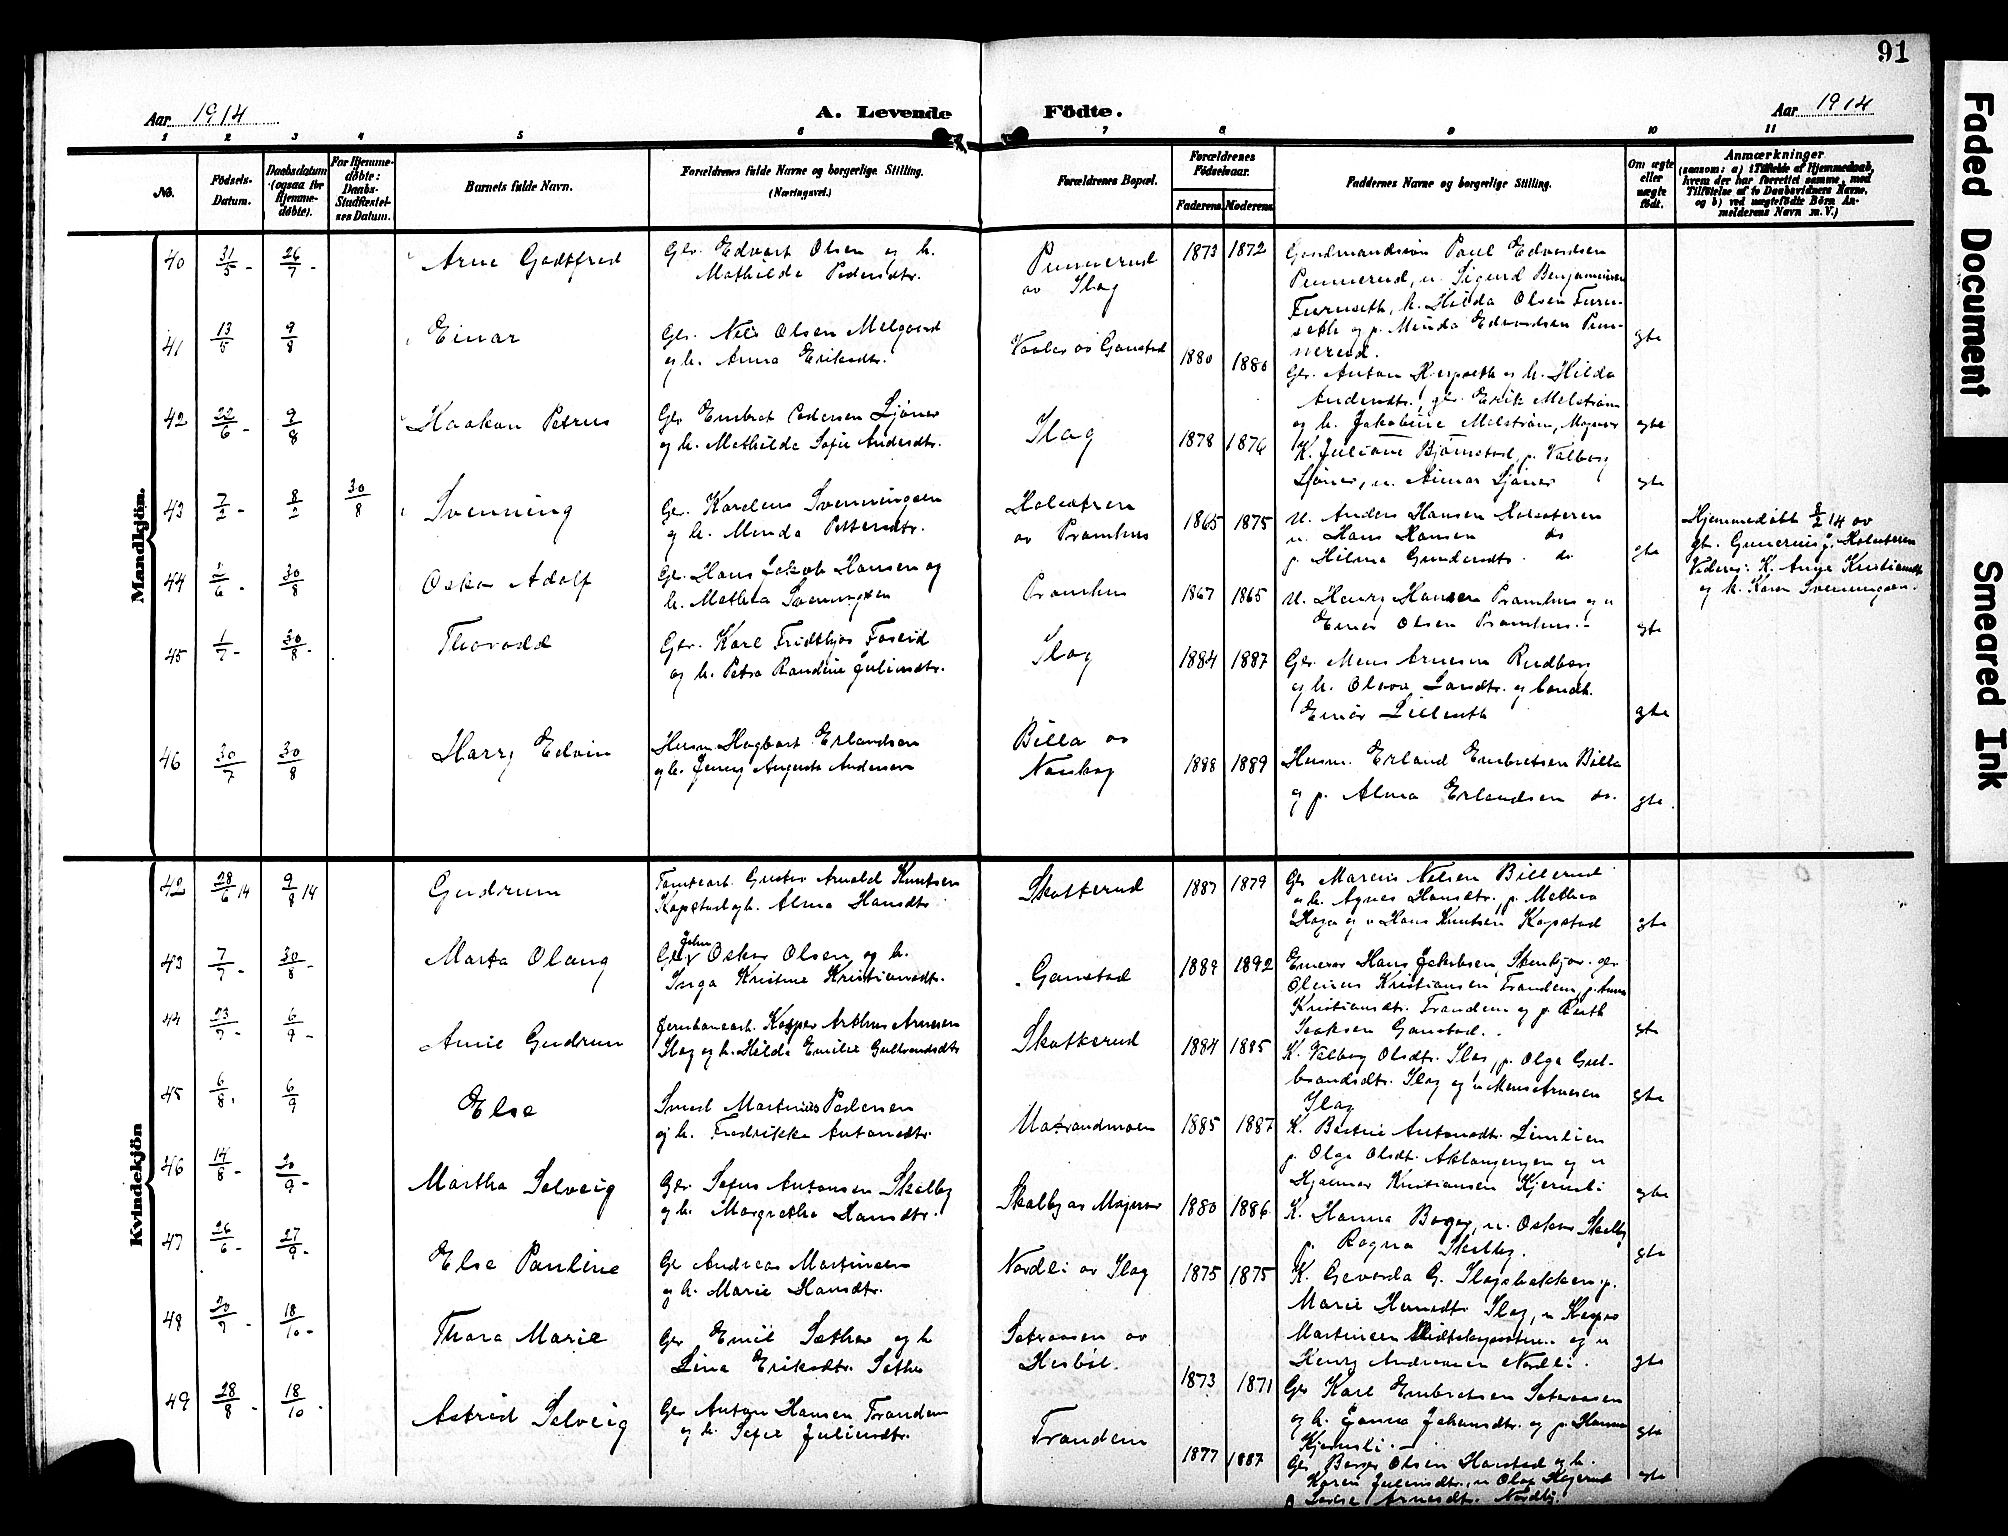 91
Aar 1914
A. Levende Födte.
Aar 1914
1 2 3 4 5 6 7 8 9 10 11
No.
Födsels-
Datum.
Daabsdatum
(ogsaa for
Hjemme-
døbte).
For Hjemme-
døbte:
Daabs-
Stadfæstel-
ses Datum.
Barnets fulde Navn.
Forældrenes fulde Navne og borgerlige Stilling.
(Næringsvei.)
Forældrenes Bopæl.
Forældrenes
Födselsaar.
Faderens Moderens
Faddernes Navne og borgerlige Stilling.
Om ægte
eller
uægte
født.
Anmærkninger
(saasom: a) i Tilfælde af Hjemmedaab,
hvem der har forrettet samme, med
Tilföielse af to Daabsvidners Navne,
og b) ved uægtefödte Börn An-
melderens Navn m. V.)
Mandkjön.
40 31/5 - 26/7 -
Arne Godtfred
Gbr. Edvart Olsen og h.
Mathilde Pedersdtr.
Pinnerud
av Slog
1873 1872
Gaardmandssön Paul Edvardsen
Pinnerud, u. Sigurd Benjaminsen
Furuseth, h. Hilda Olsen Furu-
seth og p. Minda Edvardsen Pin-
nerud.
gte
41 13/5 9/8
Einar
Gbr. Nils Olsen Melgaard
og h. Anna Eriksdtr.
Vaaler av Gaustad
1880 1880
Gbr. Anton og h. Hilda
Andersdtr., gbr. Erik Melström
og h. Jakobine Melström, Magnor
gte
42 22/6 - 9/8
Haakon Petrus
Gbr Embret Pedersen Sjöner
og h. Mathilde Sofie Andersdtr.
Slog
1878 1876
K. Juliane Björnstad, p. Valborg
Sjöner, u. Einar Sjöner
gte
43 7/2 - 8/2 30/8
Svenning
Gbr. Karelius Svenningsen
og h. Minda Pettersdtr.
Holsætren
av Pramhus
1865 1875
U. Anders Hansen Holsæteren
u. Hans Hansen do
p. Hilma Gundersdtr. do
gte
Hjemmedöbt 8/2 14 av
gb. Gunerius J. Holsæteren
Vidner: K. Anne Kristiansdtr
og h. Karen Svenningsen.
44 /6 - 30/8
Oskar Adolf
Gbr. Hans Jakob Hansen og
h. Mathea Svenningsen
Pramhus
1867 1865
U. Henry Hansen Pramhus og u
Einar Olsen Pramhus. -
gte
45 1/7 - 30/8 -
Thorvald
Gbr. Karl Fridthjof Foseid
og h. Petra Randine Juliusdtr.
Slog
1884 1887
Gbr. Mens Arnesen Rudberg
og h. Olava Larsdtr. og landh.
Einar Lilleseth
gte
46 30/7 30/8
Harry Edvin
Husm. Hagbart Erlandsen
og h. Jenny Augusta Andersen
Billa av
Norskog
1888 1889
Husm. Erland Embretsen Billa
og p. Alma Erlandsen do.
gte.
Kvindekjön
42 28/6 14 9/8 14
Gudrun
Tomtearb. Gustav Arnold Knutsen
Kopstad og h. Alma Hansdtr
Skotterud
1887 1879
Gbr Marius Nilsen Billerud
og h. Agnes Hansdtr., p. Mathea
Haga og u Hans Knutsen Kopstad
gte
43 7/7 - 30/8 -
Marta Olaug
Gbr John Oskar Olsen og h.
Inga Kristine Kristiansdtr.
Gaustad
1889 1892
Hans Jakobsen, gbr
Olinus Kristiansen Trandem, p. Anna
Kristiansdtr. Trandem og p. Ruth
Isaksen Gaustad. -
gte
44 23/7 - 6/9
Anne Gudrun
Jernbanearb. Kasper Arthur Arnesen
Slog og h. Hilda Emilie Gulbrandsdtr
Skotterud
1884 1885
K. Valborg Olsdtr. Slog, p. Olga Gul-
brandsdtr. Slog og u Mens Arnesen
Slog
gte
45 6/8. 6/9
Else
Smed Martinius Pedersen
og h. Fredrikke Antonsdtr.
Matrandmoen
1885 1887
K. Bertine Antonsdtr. Linlien
p. Olga Olsdtr. Aklangengen og u
Hjalmar Kristiansen Kjernsli
gte
46 14/8 - 20/9 -
Martha Solveig
Gbr Sefus Antonsen Skalby
og h. Margrethe Hansdtr.
Skalby av Magnor
1880 1886
K. Hanna Boger, u. Oskar Skalby
p. Ragna Skalby.
gte
47 26/6 - 27/9 -
Else Pauline
Gbr Andreas Martinsen
og h. Marie Hansdtr.
Nordli av Slog
1875 1875
K. Gevarda G. Slogsbakken, p.
Marie Hansdtr Slog, u Kasper
Martinsen og u
Henry Andreassen Nordli.
gte
48 20/7 - 18/10 -
Thora Marie
Gbr Emil Sæther og h
Lina Eriksdtr. Sæther
Sætraasen av
Hesböl.
1873 1871
Gbr Karl Embretsen Sætraasen
og h. Janna Johansdtr. og p. Hanna
Kjernsli. -
gte
49 28/8 - 18/10 -
Astrid Solveig
Gbr Anton Hansen Trandem
og h. Sofie Juliusdtr.
Trandem
1877 1887
Gbr Olsen Harstad og h.
Karen Juliusdtr., u Olav
p Arnesdtr. Nordli.
gte
Faded Document
Smeared Ink